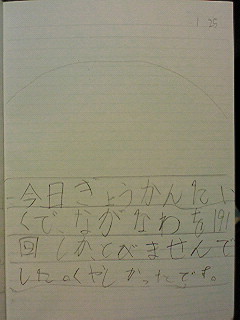 1 25
今日きょうかんたい
くで、ながなわを191
回しかとべませんで
したくやしかったです。